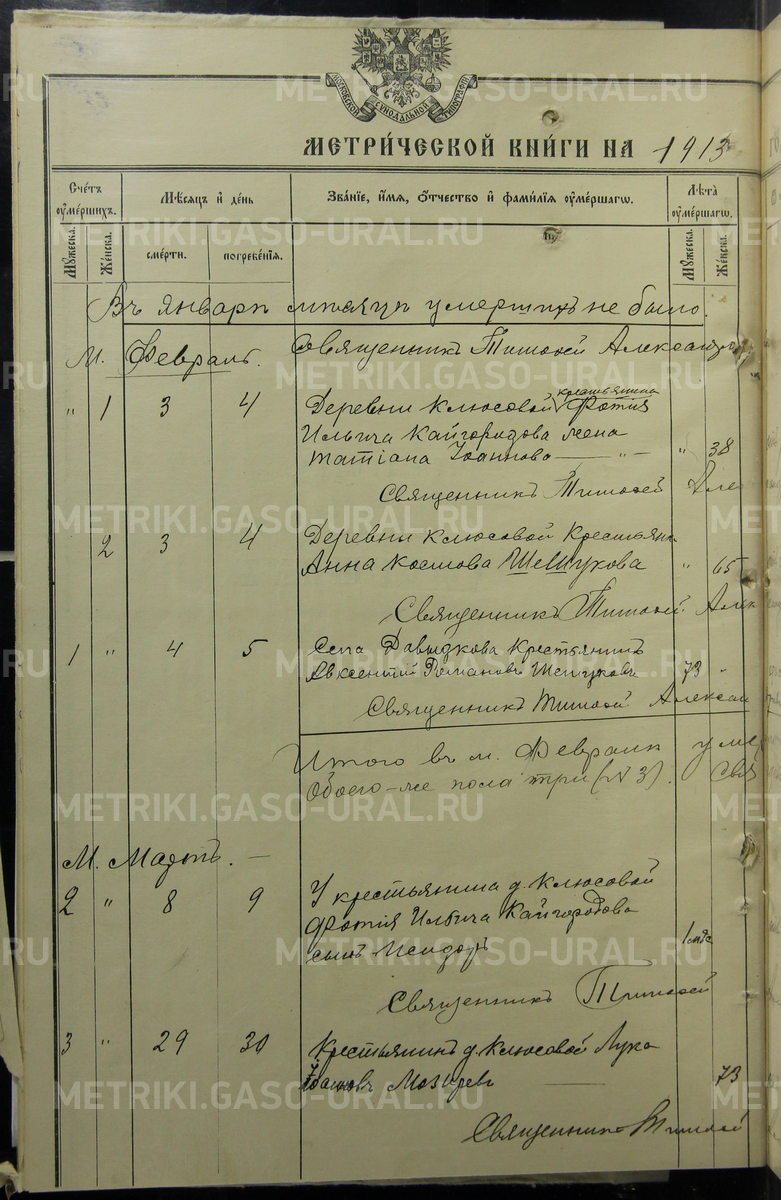 METRIKI.GASO-URAL.RU
МОСКОВСКОЙ СѴНОДАЛЬНОЙ ТИПОГРАФІИ
МЕТРИ́ЧЕСКОЙ КНИ́ГИ НА 1913
Сче́тъ оумершихъ.
Мѣсяцъ и день
Зва́нїе, и́мѧ, ѻ́тчество и фами́лїѧ оумершагѡ.
Лѣ́та оумершагѡ.
Мужеска.
Женска.
смерти.
погребе́нїѧ.
Мужеска.
Женска.
Въ январѣ мѣсяцѣ умершихъ не было.
М. Февраль. Священникъ Тимофей
крестьянина
" 1 3 4 Деревни Клюсовой Фотія
Ильича Кайгородова жена
Татіана Іоаннова — " — " 38
Священникъ Тимофей Але
2 3 4 Деревни Клюсовой Крестьян
Анна Шешукова " 65
Священникъ Тимофей Алек
1 " 4 5 Села Давыдкова Крестьянинъ
Авксентій Романовъ Шешуковъ 73 "
Священникъ Тимофей Алексан
Итого въ м. Февралѣ умер
Обоего-же пола три (№ 3). Свя
М. Мартъ. —
2 " 8 9 У крестьянина д. Клюсовой
Фотія Ильича Кайгородова
сынъ Исидоръ 1 мѣс
Священникъ Тимофей
3 " 29 30 Крестьянинъ д. Клюсовой Лука
Іоанновъ 73
Священникъ Тимофей